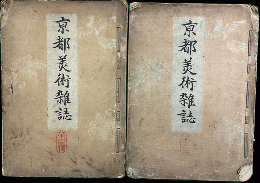 京都美術雑誌
京都美術雑誌